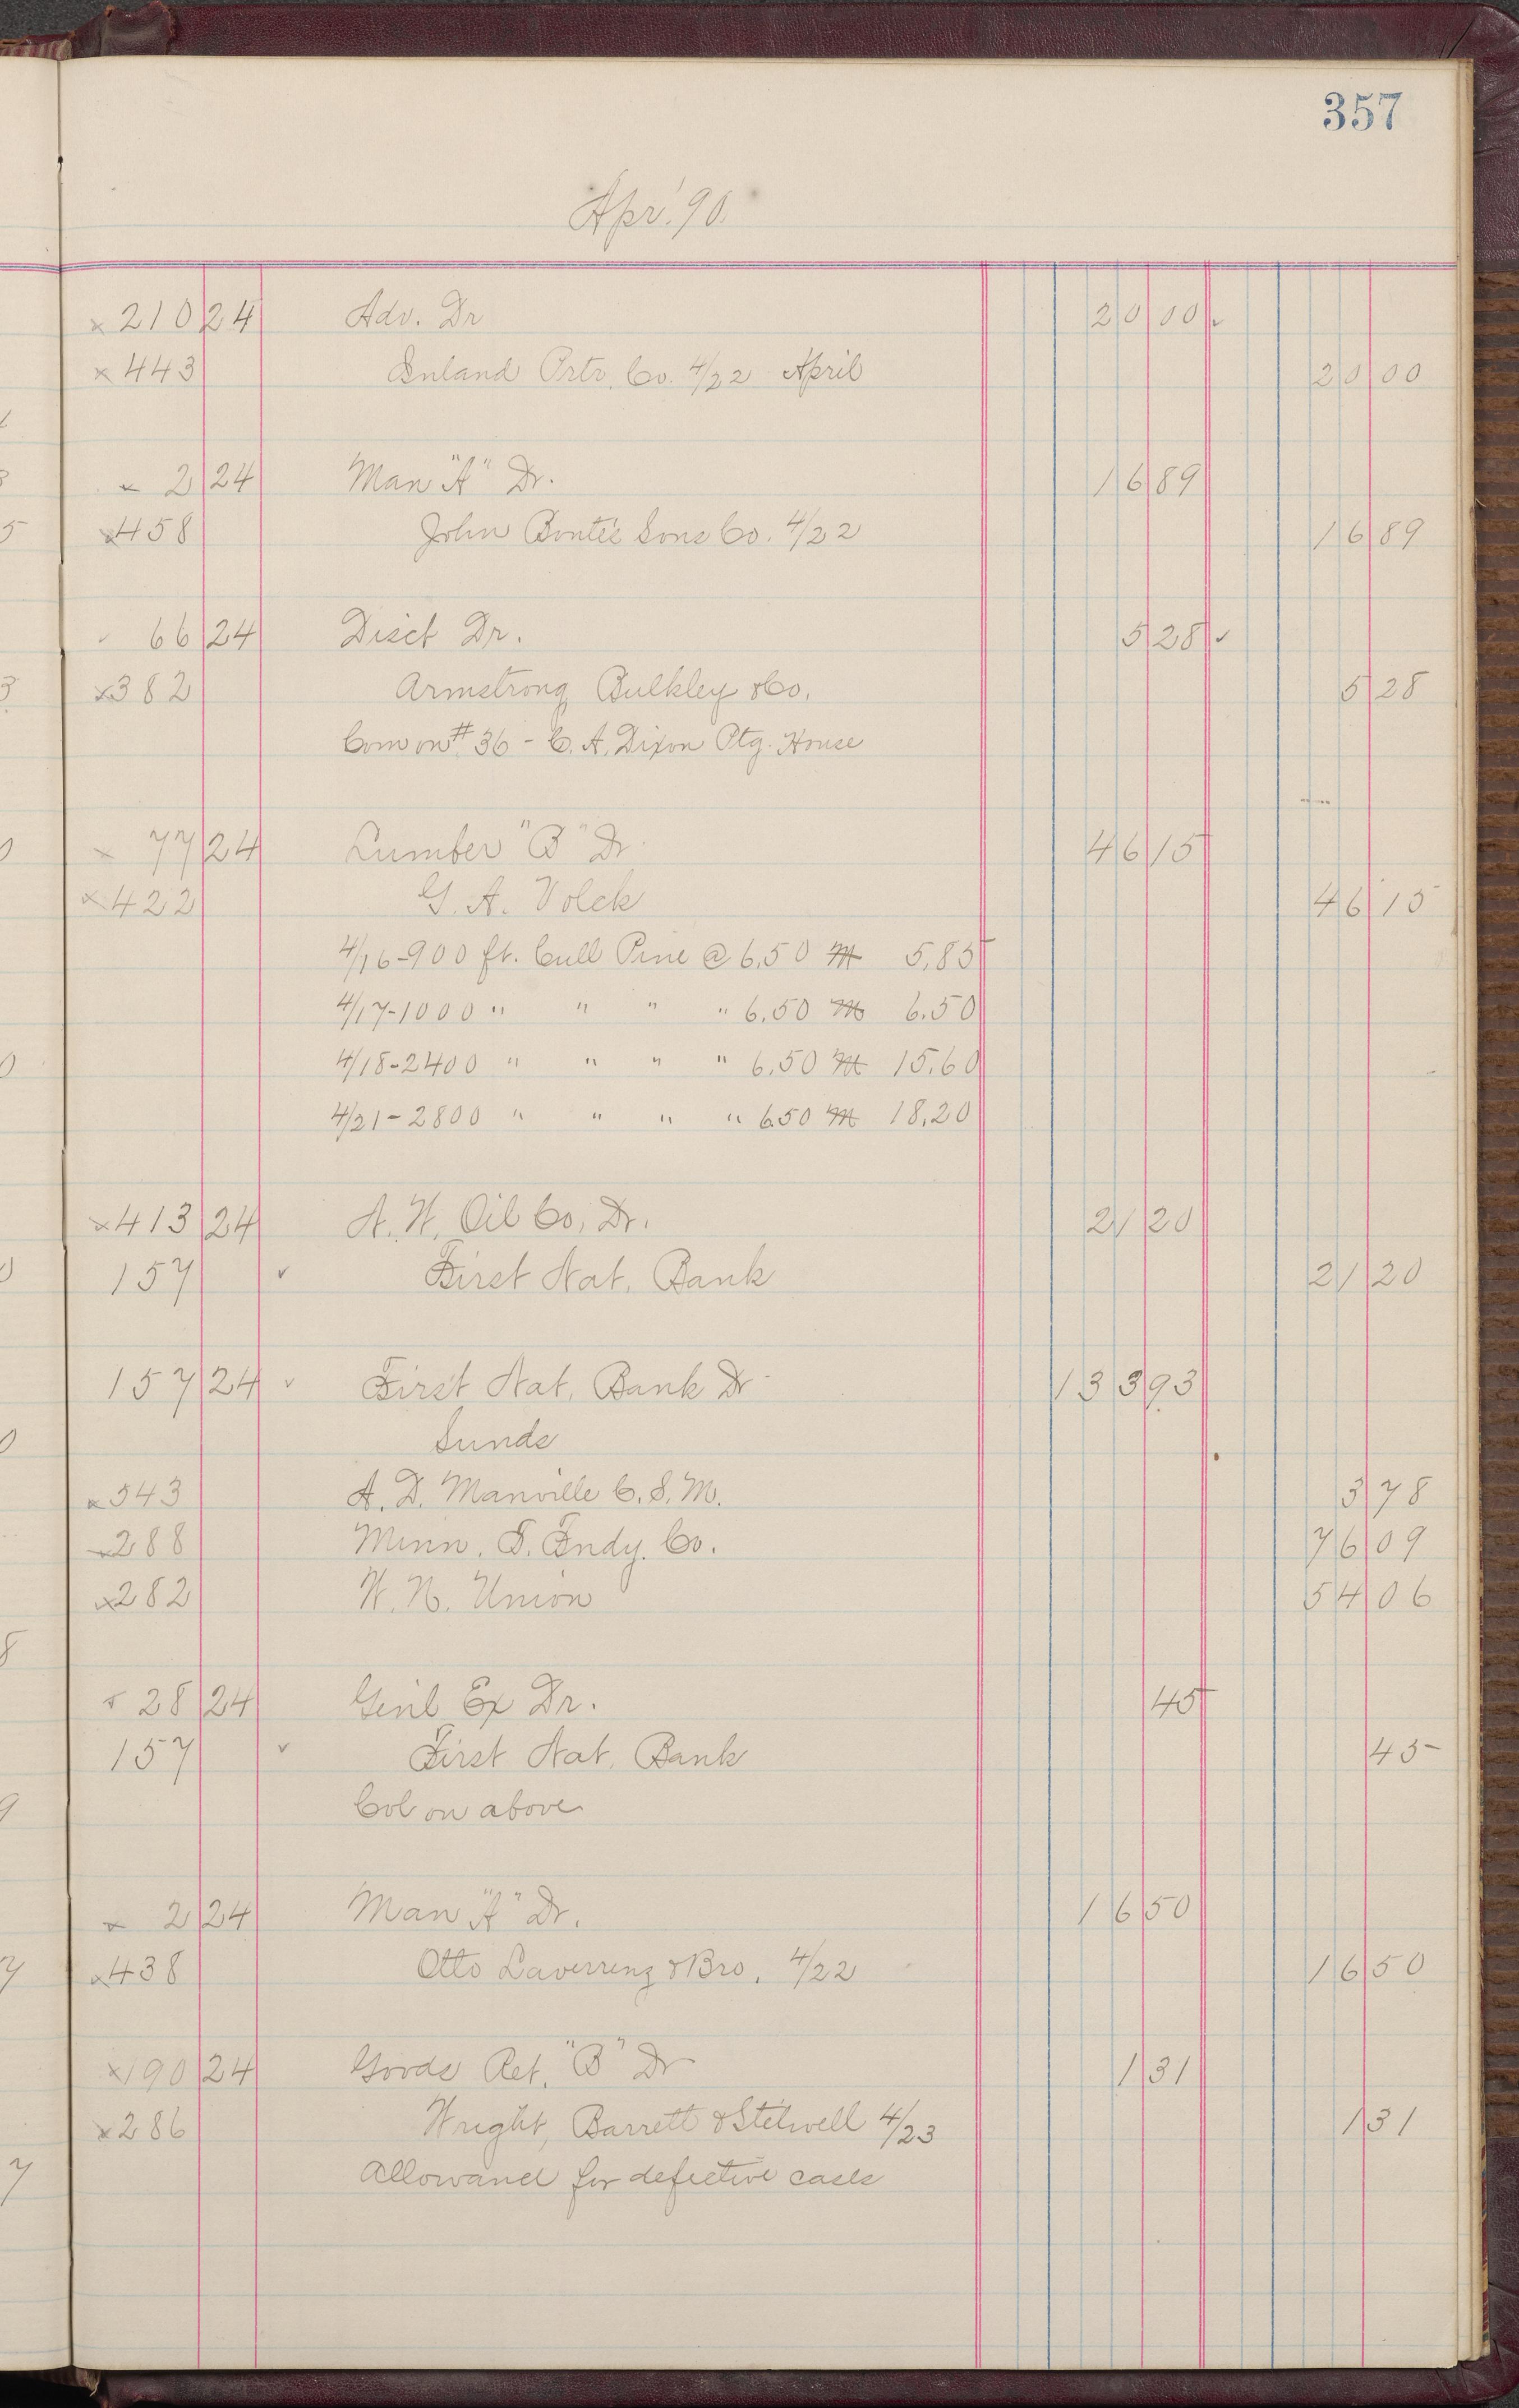 357
Apr. '90.
x 210 24 Adv. Dr 20 00 ✓
x 443 Inland Prtr. Co. 4/22 April 20 00
x 2 24 Man "A" Dr. 16 89
x 458 John Bonte's Sons Co. 4/22 16 89
✓ 66 24 Disct Dr. 5 28 ✓
x 382 Armstrong Bulkley & Co. 5 28
Com on # 36 - C. A. Dixon Ptg. House
x 77 24 Lumber "B" Dr 46 15
x 422 G. A. Volck 46 15
4/16-900 ft. Cull Pine @ 6.50 M 5.85
4/17-1000 " " " " 6.50 M 6.50
4/18-2400 " " " " 6.50 M 15.60
4/21-2800 " " " " 6.50 M 18.20
x 413 24 A. W. Oil Co. Dr. 21 20
157 ✓ First Nat. Bank 21 20
157 24 ✓ First Nat. Bank Dr 133 93
Sunds
x 343 A. D. Manville C. S. M. 3 78
x 288 Minn. T. Fndy. Co. 76 09
x 282 W. N. Union 54 06
x 28 24 Genl Ex Dr. 45
157 ✓ First Nat. Bank 45
Col on above
x 2 24 Man "A" Dr. 16 50
x 438 Otto Laverrenz & Bro. 4/22 16 50
x 190 24 Goods Ret. "B" Dr 1 31
x 286 Wright, Barrett & Stilwell 4/23 1 31
Allowance for defective cases